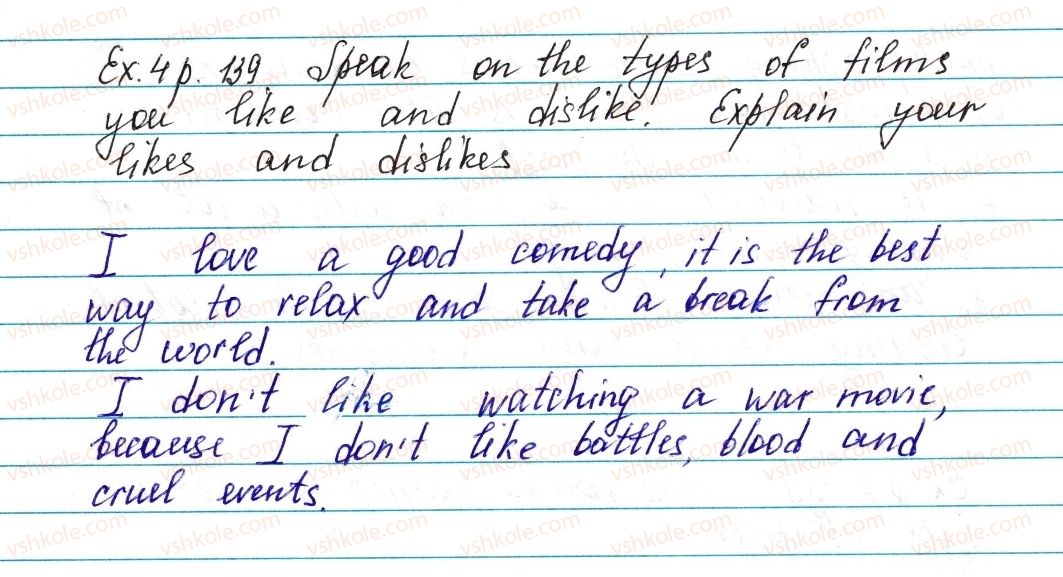 Ex. 4 p. 139 Speak on the types of films
you like and dislike. Explain your
likes and dislikes
I love a good comedy, it is the best
way to relax and take a break from
the world.
I don't like watching a war movie,
because I don't like battles, blood and
cruel events.
vshkole.com